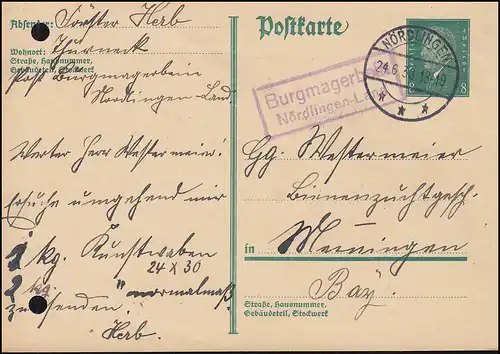 Absender: Förster Herb
Wohnort: Thurneck
Straße, Hausnummer,
Gebäudeteil, Stockwerk
Post Burgmagerbein
Nördlingen-Land.
Werter Herr Westermeier!
Ersuche umgehend mir
1 kg. Kunstwaben
24 x 30
2 kg. " normalmaß
zu senden.
Herb.
Postkarte
NÖRDLINGEN
24.6.30
8
Burgmagerb
Nördlingen-L
Gg. Westermeier
Bienenzuchtgesch.
in Memmingen
Bay.
Straße, Hausnummer,
Gebäudeteil, Stockwerk